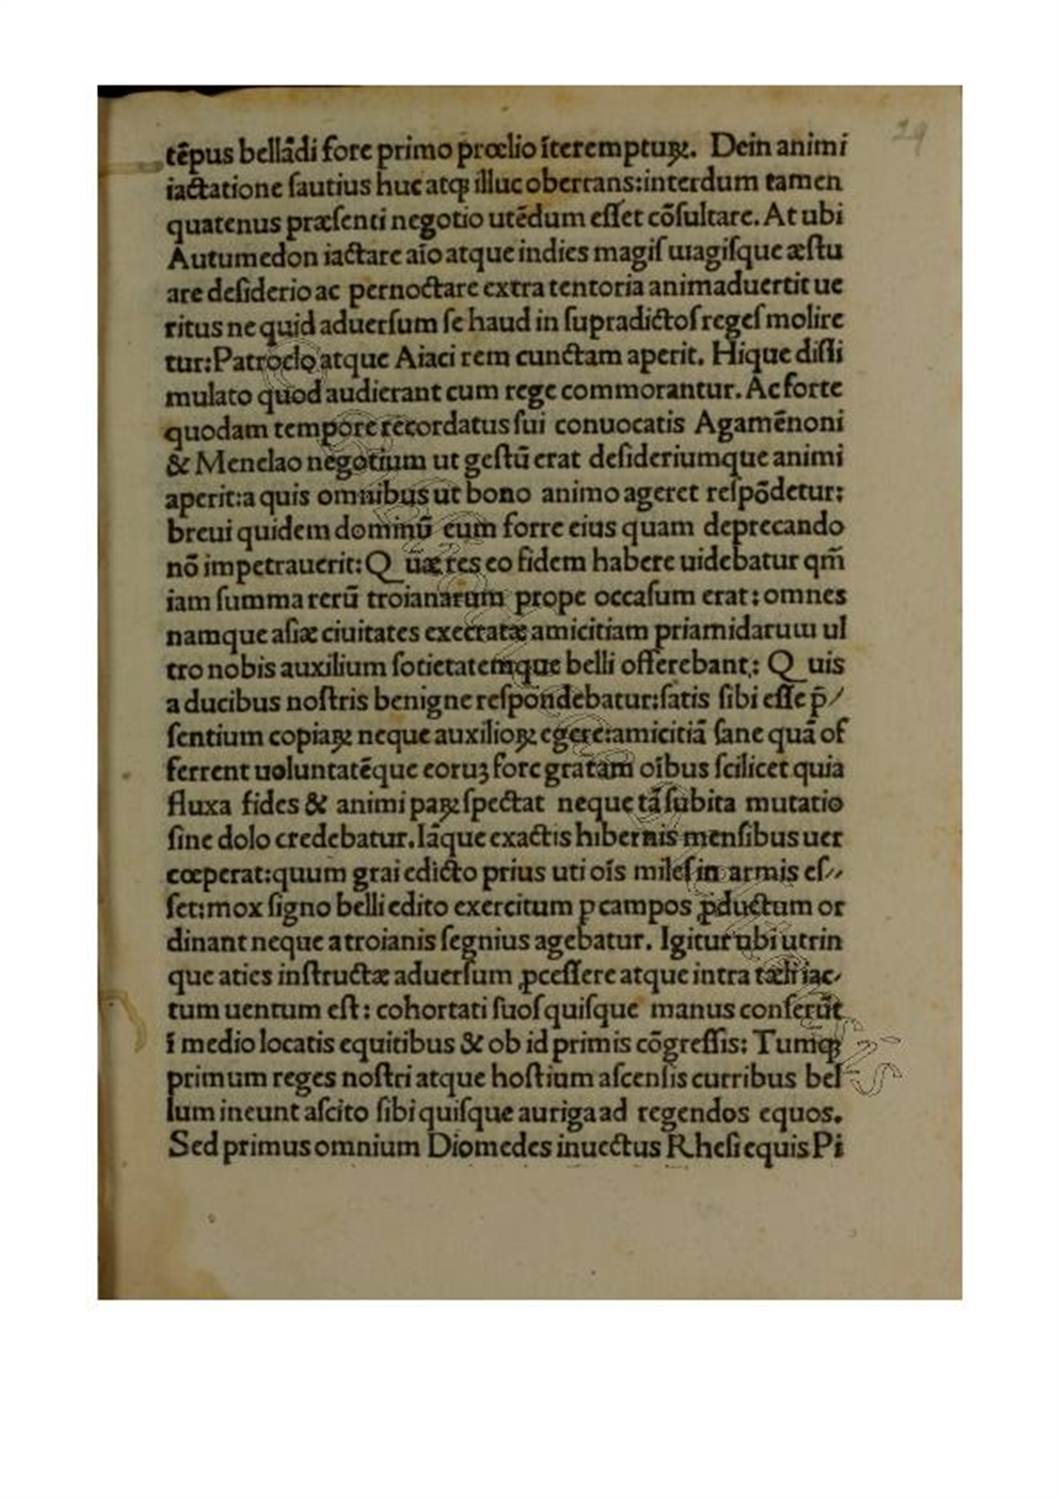 29
tēpus bellādi fore primo prœlio īteremptuꝝ. Dein animi
iactatione ſautius huc atqꝫ illuc oberrans:interdum tamen
quatenus præſenti negotio utēdum eſſet cōſultare. At ubi
Autumedon iactare aīo atque indies magiſ magiſque æſtu
are deſiderio ac pernoctare extra tentoria animaduertit ue
ritus ne quid aduerſum ſe haud in ſupradictoſ regeſ molire
tur:Patroclo atque Aiaci rem cunctam aperit. Hique diſſi
mulato quod audierant cum rege commorantur. Ac forte
quodam tempore recordatus ſui conuocatis Agamēnoni
& Menelao negotium ut geſtū erat deſideriumque animi
aperit:a quis omnibus ut bono animo ageret reſpōdetur:
breui quidem dominū eum forre eius quam deprecando
nō impetrauerit:Q uæ res eo fidem habere uidebatur qm̄
iam ſumma rerū troianarum prope occaſum erat:omnes
namque aſiæ ciuitates execratæ amicitiam priamidarum ul
tro nobis auxilium ſotietatemque belli offerebant: Q uis
a ducibus noſtris benigne reſpondebatur:ſatis ſibi eſſe p̄/
ſentium copiaꝝ neque auxilioꝝ egere:amicitiā ſane quā of
ferrent uoluntatēque eoruꝫ fore gratam oībus ſcilicet quia
fluxa fides & animi paꝝ ſpectat neque tā ſubita mutatio
ſine dolo credebatur.Iāque exactis hibernis menſibus uer
cœperat:quum grai edicto prius uti oīs mileſ in armis eſ//
ſet:mox ſigno belli edito exercitum ꝑ campos ꝓductum or
dinant neque a troianis ſegnius agebatur. Igitur ubi utrin
que aties inſtructæ aduerſum ꝓceſſere atque intra tæli iac/
tum uentum eſt: cohortati ſuoſ quiſque manus conſerūt
ī medio locatis equitibus & ob id primis cōgreſſis: Tumqꝫ
primum reges noſtri atque hoſtium aſcenſis curribus bel
lum ineunt aſcito ſibi quiſque auriga ad regendos equos.
Sed primus omnium Diomedes inuectus Rheſi equis Pi